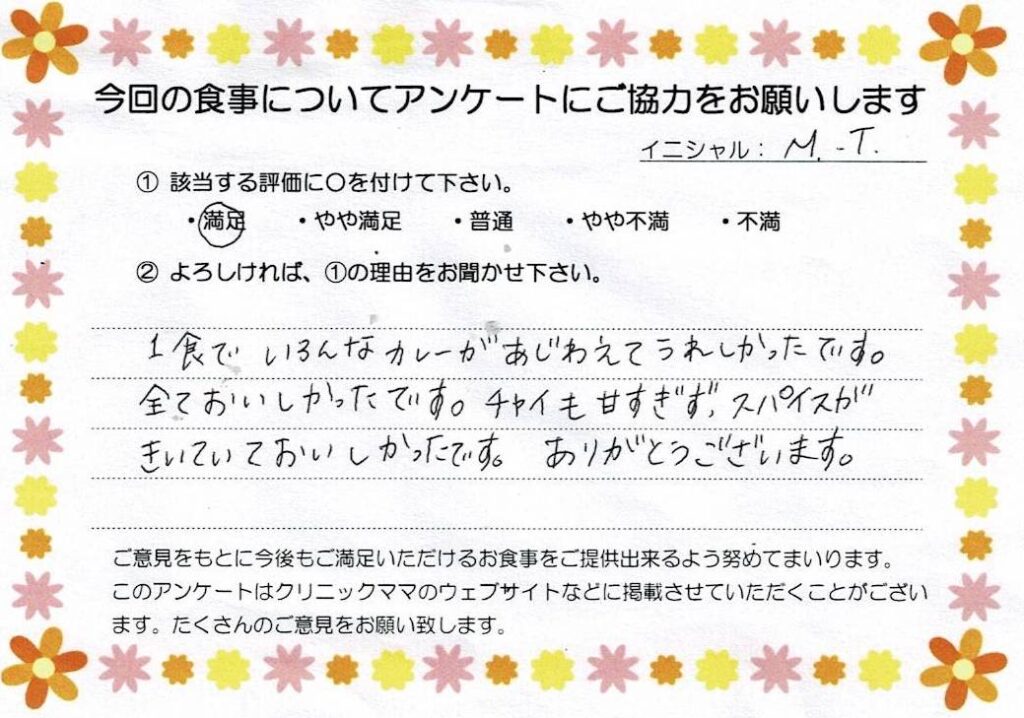 今回の食事についてアンケートにご協力をお願いします
イニシャル： M.-T.
① 該当する評価に〇を付けて下さい。
・満足 ・やや満足 ・普通 ・やや不満 ・不満
② よろしければ、①の理由をお聞かせ下さい。
1食で いろんなカレーがあじわえてうれしかったです。
全ておいしかったです。チャイも甘すぎず、スパイスが
きいていておいしかったです。 ありがとうございます。
ご意見をもとに今後もご満足いただけるお食事をご提供出来るよう努めてまいります。
このアンケートはクリニックママのウェブサイトなどに掲載させていただくことがござい
ます。たくさんのご意見をお願い致します。